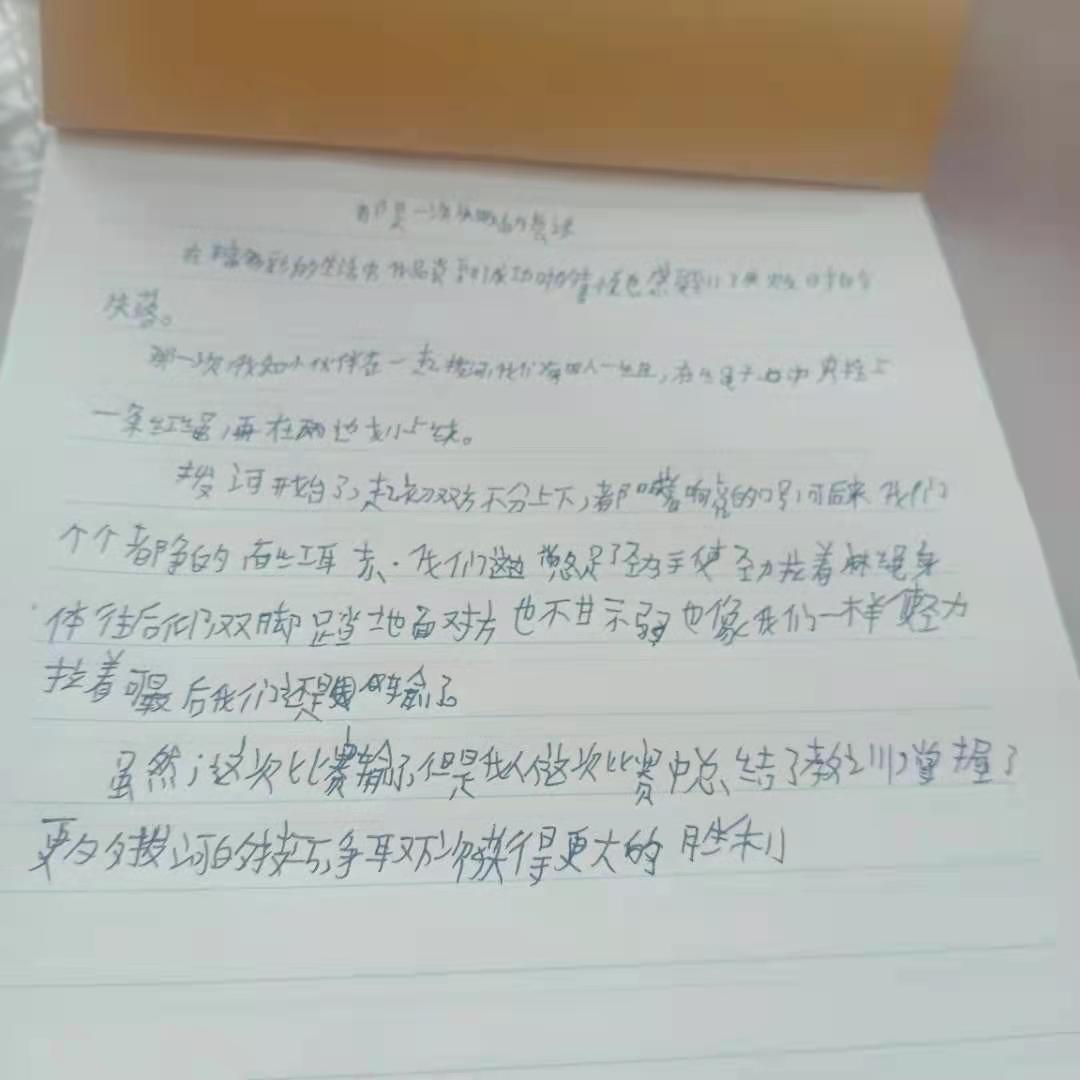 那是一次失败的尝试
在丰富多彩的生活中我品尝到成功时的喜悦也感受到了失败时的
失落。
那一次,我和小伙伴在一起拔河,我们有四人一组,在绳子中央拴上
一条红绳,再在两边划上线。
拔河开始了,起初双方不分上下,都喊着响亮的口号,可后来我们
个个都争的面红耳赤.我们这边憋足了劲手使劲拉着麻绳身
体往后仰双脚蹬地面对方也不甘示弱也像我们一样使劲
拉着可最后我们还是输了
虽然,这次比赛输了,但是我从这次比赛中总结了教训,掌握了
更多拔河的技巧,争取下次获得更大的胜利